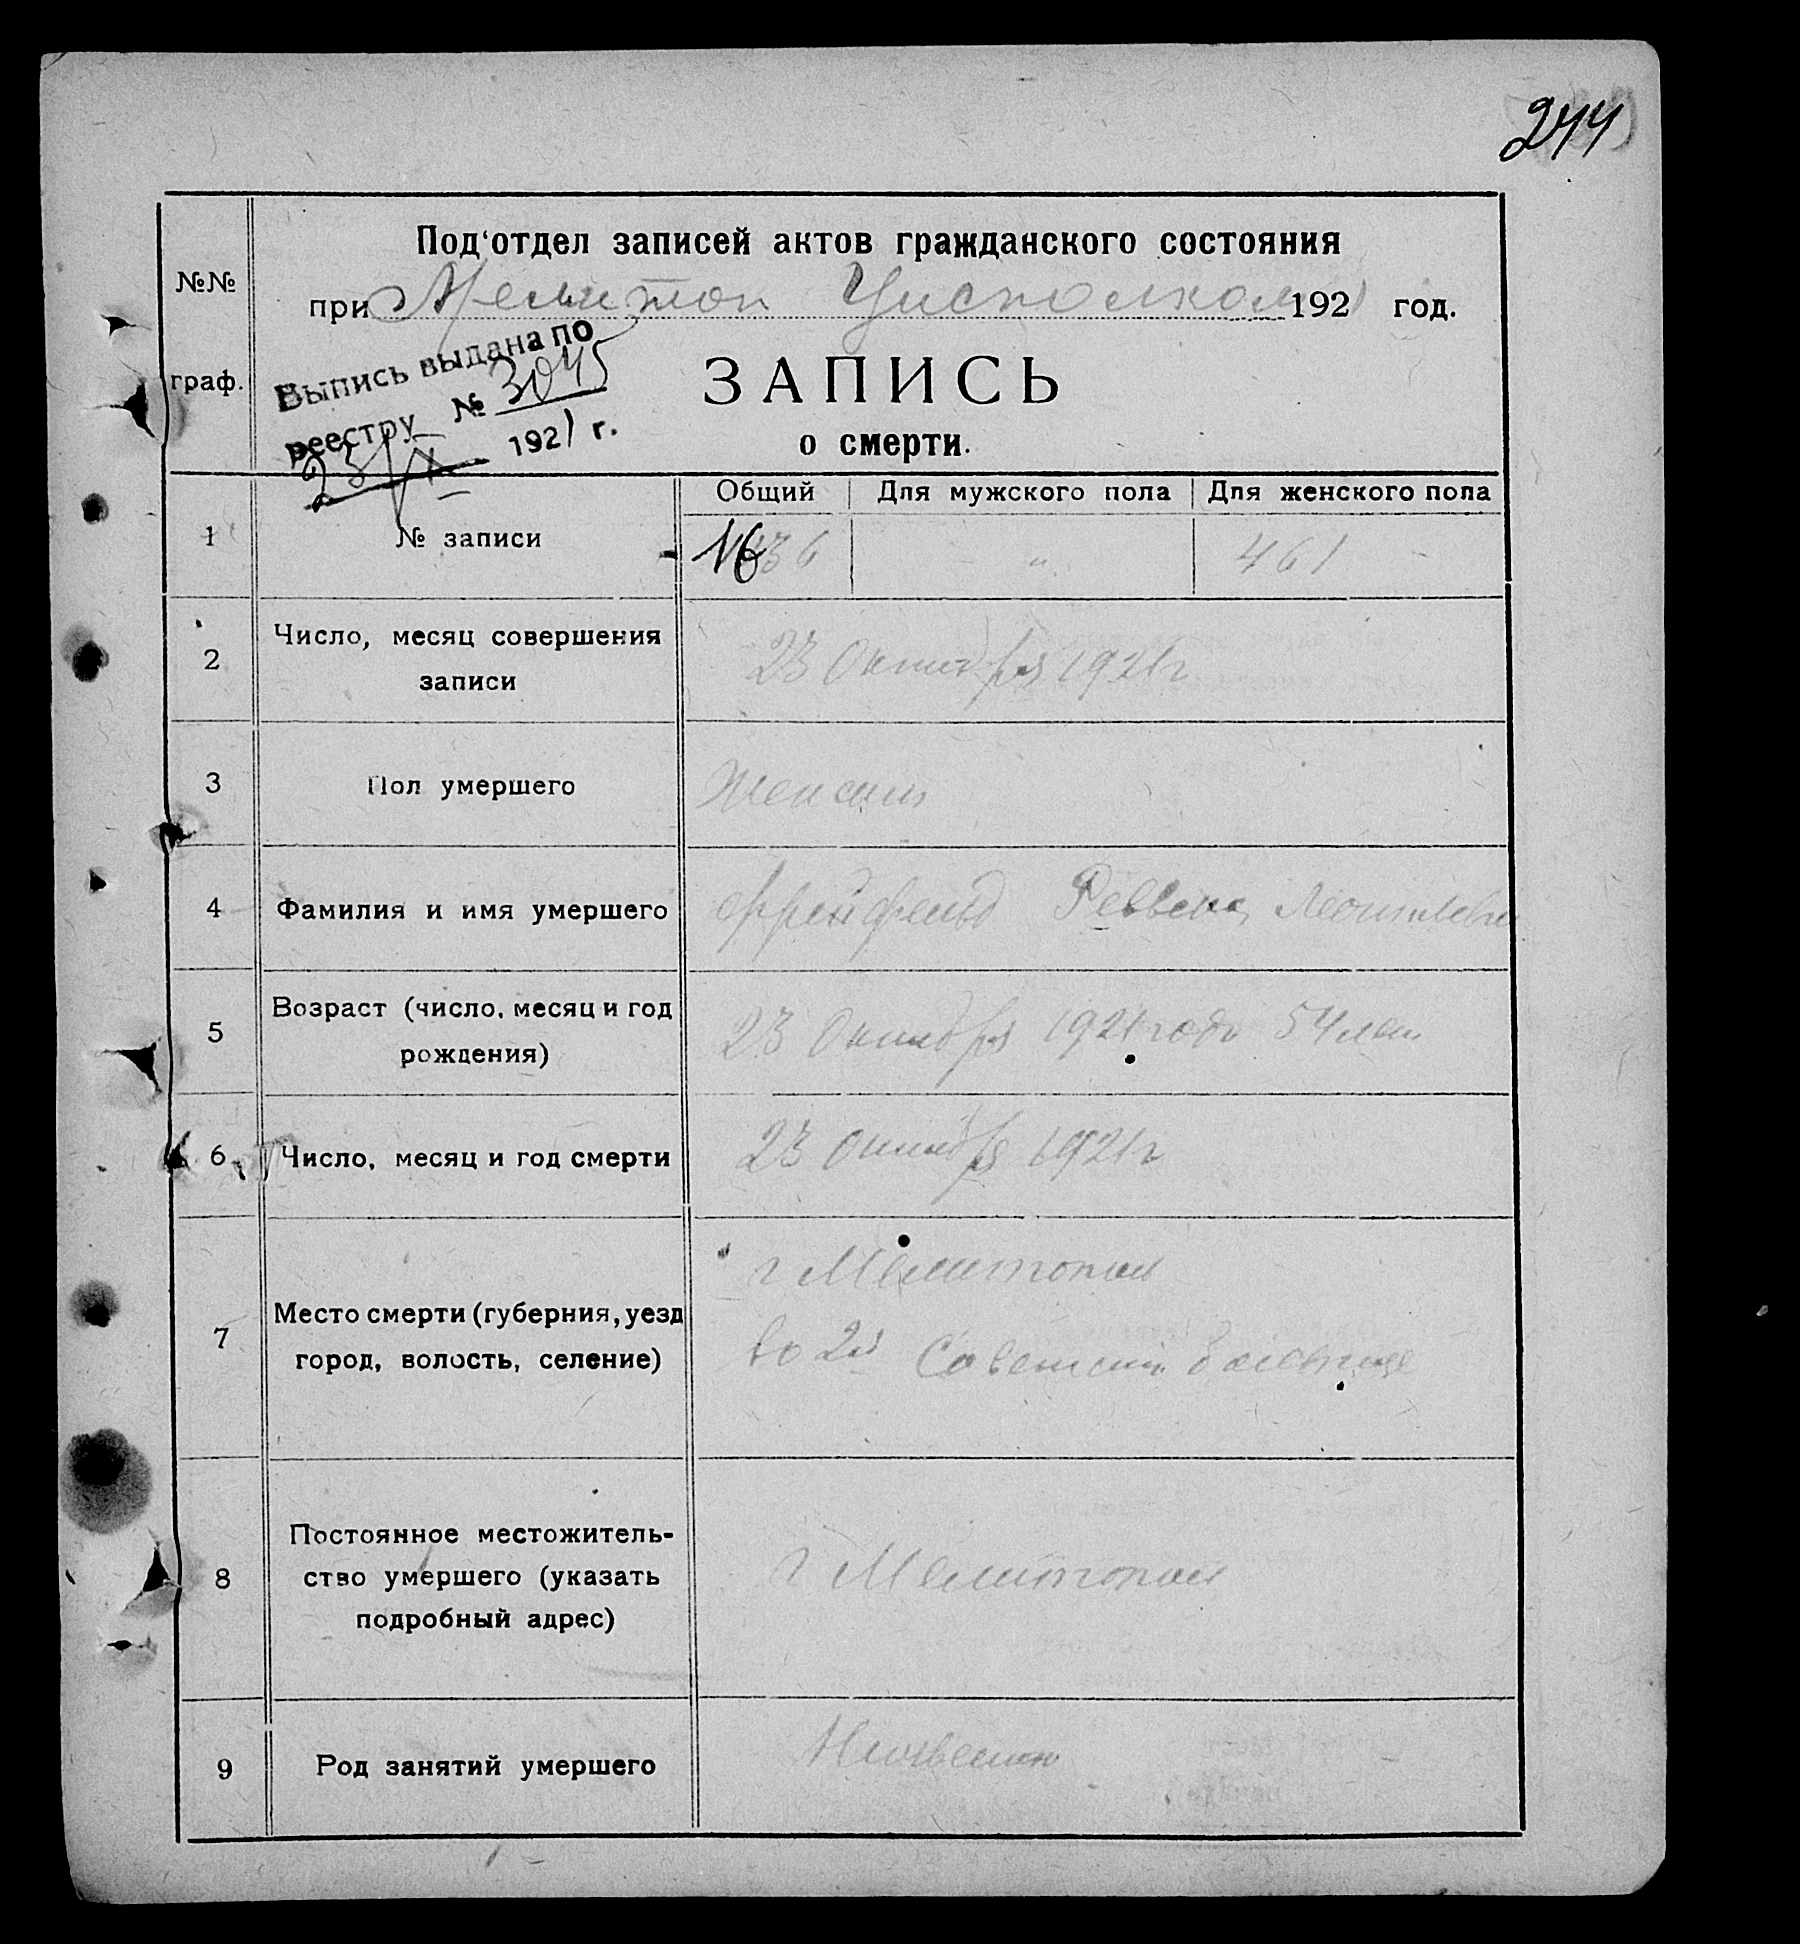 244
Под'отдел записей актов гражданского состояния
№№
при Мелитоп Уисполком 1921 год.
Выпись выдана по
реестру № 3045
23/X 1921 г.
граф.
ЗАПИСЬ
о смерти.
Общий Для мужского пола Для женского пола
1 № записи 461
2 Число, месяц совершения
записи
23 Октября 1921 г
3 Пол умершего Женский
4 Фамилия и имя умершего Фрейфельд
5 Возраст (число, месяц и год
рождения)
23 Октября 1921 года 54 лет
6 Число, месяц и год смерти 23 Октября 1921 г
7 Место смерти (губерния, уезд
город, волость, селение)
г Мелитополь
во 2й Советской больнице
8 Постоянное местожитель-
ство умершего (указать
подробный адрес)
г Мелитополь
9 Род занятий умершего